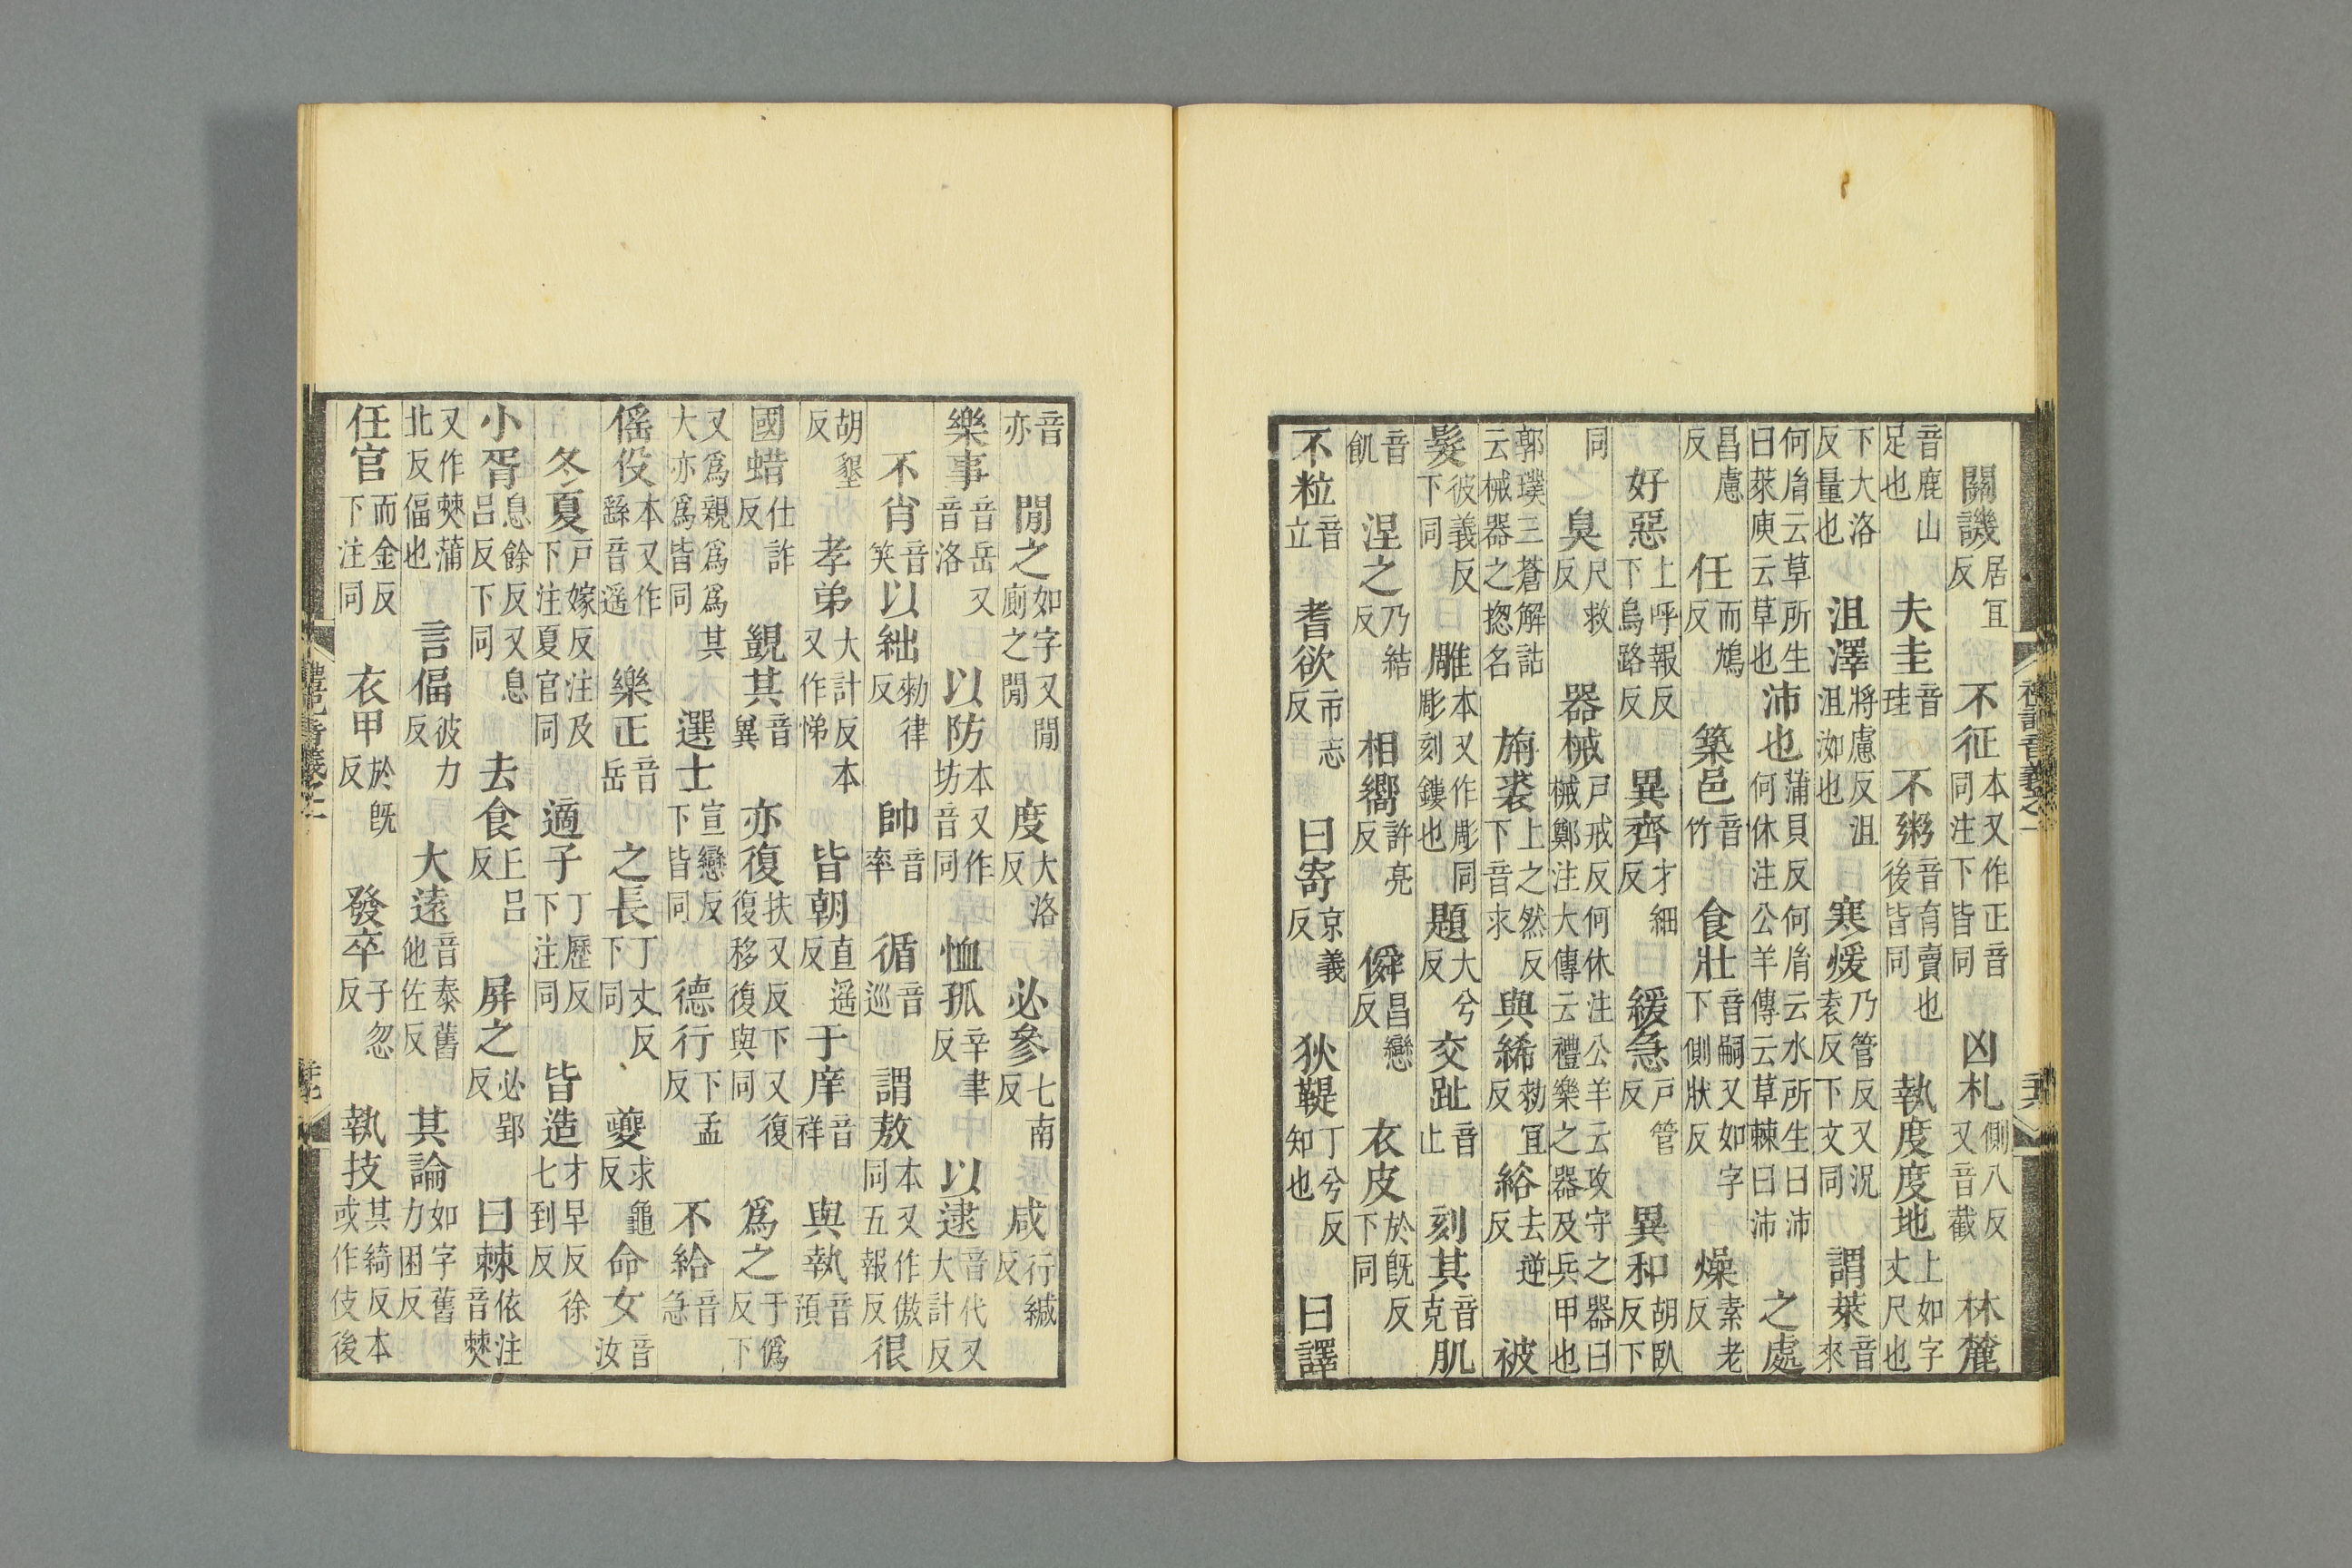 關譏居宜反 不征本又作正音同注下皆同 凶札側八反又音截 林麓
音鹿山足也 夫圭音珪 不粥音育賣也後皆同 執度度地上如字丈尺也
下大洛反量也 沮澤將慮反沮洳也 寒煖乃管反又況袁反下文同 謂萊音來
何胤云草所生曰萊庾云草也 沛也蒲貝反何胤云水所生曰沛何休注公羊傳云草棘曰沛 之處
昌慮反 任而鴆反 築邑音竹 食壯音嗣又如字下側狀反 燥素老反
好惡上呼報反下烏路反 異齊才細反 緩急戸管反 異和胡臥反下
同 臭尺救反 器械戸戒反何休注公羊云攻守之器曰械鄭注大傳云禮樂之器及兵甲也
郭璞三蒼解詁云械器之揔名 旃裘上之然反下音求 與絺勑宜反 綌去逆反 被
髮彼義反下同 雕本又作彫同彫刻鏤也 題大兮反 交趾音止 刻其音克 肌
音飢 涅之乃結反 相嚮許亮反 僢昌戀反 衣皮於旣反下同
不粒音立 耆欲市志反 曰寄京義反 狄鞮丁兮反知也 曰譯
禮記音義之一
音亦 閒之如字又閒廁之閒 度大洛反 必參七南反 咸行緘反
樂事音岳又音洛 以防本又作坊音同 恤孤辛聿反 以逮音代又大計反
不肖音笑 以絀勑律反 帥音率 循音巡 謂敖本又作傲同五報反 很
胡墾反 孝弟大計反本又作悌 皆朝直遥反 于庠音祥 與執音預
國蜡仕詐反 覬其音冀 亦復扶又反下又復復移復與同 爲之于僞反下
又爲親爲爲其大亦爲皆同 選士宣戀反下皆同 德行下孟反 不給音急
傜役本又作繇音遥 樂正音岳 之長丁丈反下同 夔求龜反 命女音汝
冬夏戸嫁反注及下注夏官同 適子丁歷反下注同 皆造才早反徐七到反
小胥息餘反又息呂反下同 去食丘呂反 屏之必郢反 曰棘依注音僰
又作僰蒲北反偪也 言偪彼力反 大遠音泰舊他佐反 其論如字舊力困反
任官而金反下注同 衣甲於旣反 發卒子忽反 執技其綺反本或作伎後
禮記音義之一